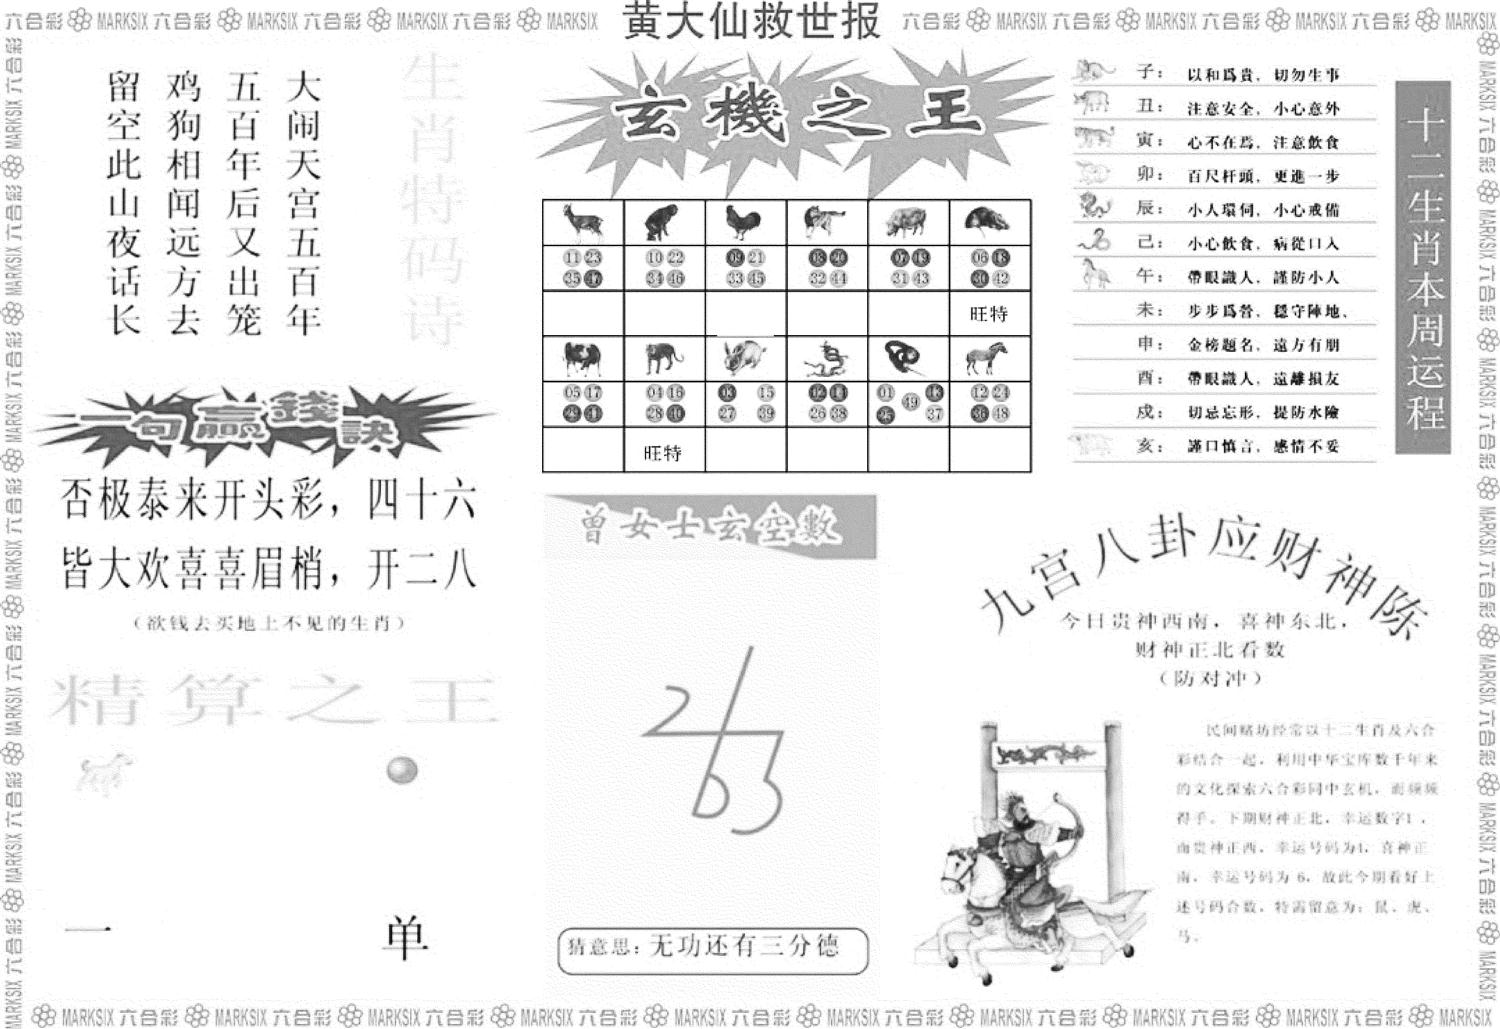 黄大仙救世报
六合彩 MARKSIX 六合彩 MARKSIX 六合彩 MARKSIX 六合彩 MARKSIX
六合彩 MARKSIX 六合彩 MARKSIX 六合彩 MARKSIX 六合彩 MARKSIX
生肖特码诗
大闹天宫五百年
五百年后又出笼
鸡狗相闻远方去
留空此山夜话长
一句赢錢訣
否极泰来开头彩，四十六
皆大欢喜喜眉梢，开二八
（欲钱去买地上不见的生肖）
精算之王
一 单
玄機之王
11 23 10 22 09 21 08 20 07 19 06 18
35 47 34 46 33 45 32 44 31 43 30 42
旺特
05 17 04 16 03 15 02 14 01 13 12 24
29 41 28 40 27 39 26 38 25 49 37 36 48
旺特
曾女士玄空數
2 6 3
猜意思：无功还有三分德
十二生肖本周运程
子：以和爲貴，切勿生事
丑：注意安全，小心意外
寅：心不在焉，注意飲食
卯：百尺杆頭，更進一步
辰：小人環伺，小心戒備
己：小心飲食，病從口入
午：帶眼識人，謹防小人
未：步步爲營，穩守陣地、
申：金榜題名，遠方有朋
酉：帶眼識人，遠離損友
戍：切忌忘形，提防水險
亥：謹口慎言，感情不妥
九宫八卦应财神陈
今日贵神西南，喜神东北，
财神正北看数
（防对冲）
民间赌坊经常以十二生肖及六合
彩结合一起，利用中华宝库数千年来
的文化探索六合彩同中玄机，而频频
得手。下期财神正北，幸运数字1，
而贵神正西，幸运号码为4，喜神正
南，幸运号码为 6，故此今期看好上
述号码合数，特需留意为：鼠、虎、
马。
MARKSIX 六合彩 MARKSIX 六合彩 MARKSIX 六合彩 MARKSIX 六合彩 MARKSIX 六合彩 MARKSIX 六合彩 MARKSIX 六合彩 MARKSIX 六合彩 MARKSIX 六合彩 MARKSIX